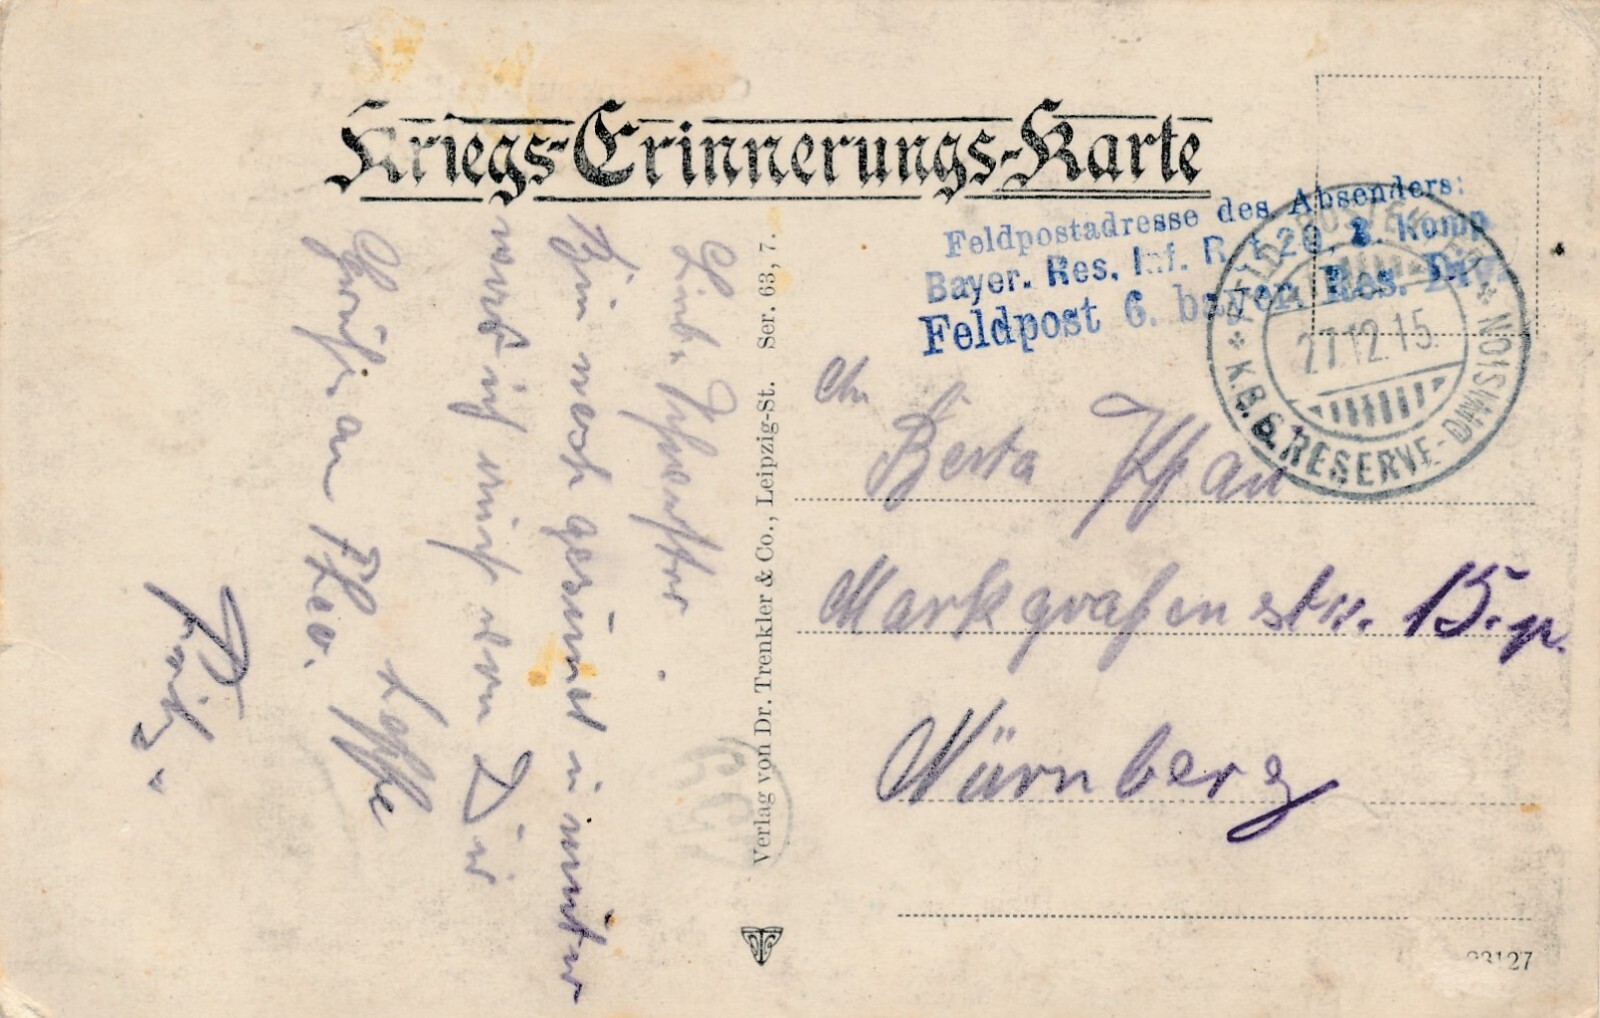 Kriegs-Erinnerungs-Karte
Feldpostadresse des Absenders:
Bayer. Res. Inf. R. 20, Komp
Feldpost 6. bayer. Res. Div.
FELDPOSTEXP.
K.B.6. RESERVE-DIVISION
27.12.15.
An
Berta Pfau
Markgrafenstr. 15. p.
Nürnberg
Liebe Schwester.
Bin noch gesund u munter
was ich auch von Dir
hoffe
Grüße an Theo.
Fritz.
Verlag von Dr. Trenkler & Co., Leipzig-St. Ser. 63, 7.
23127